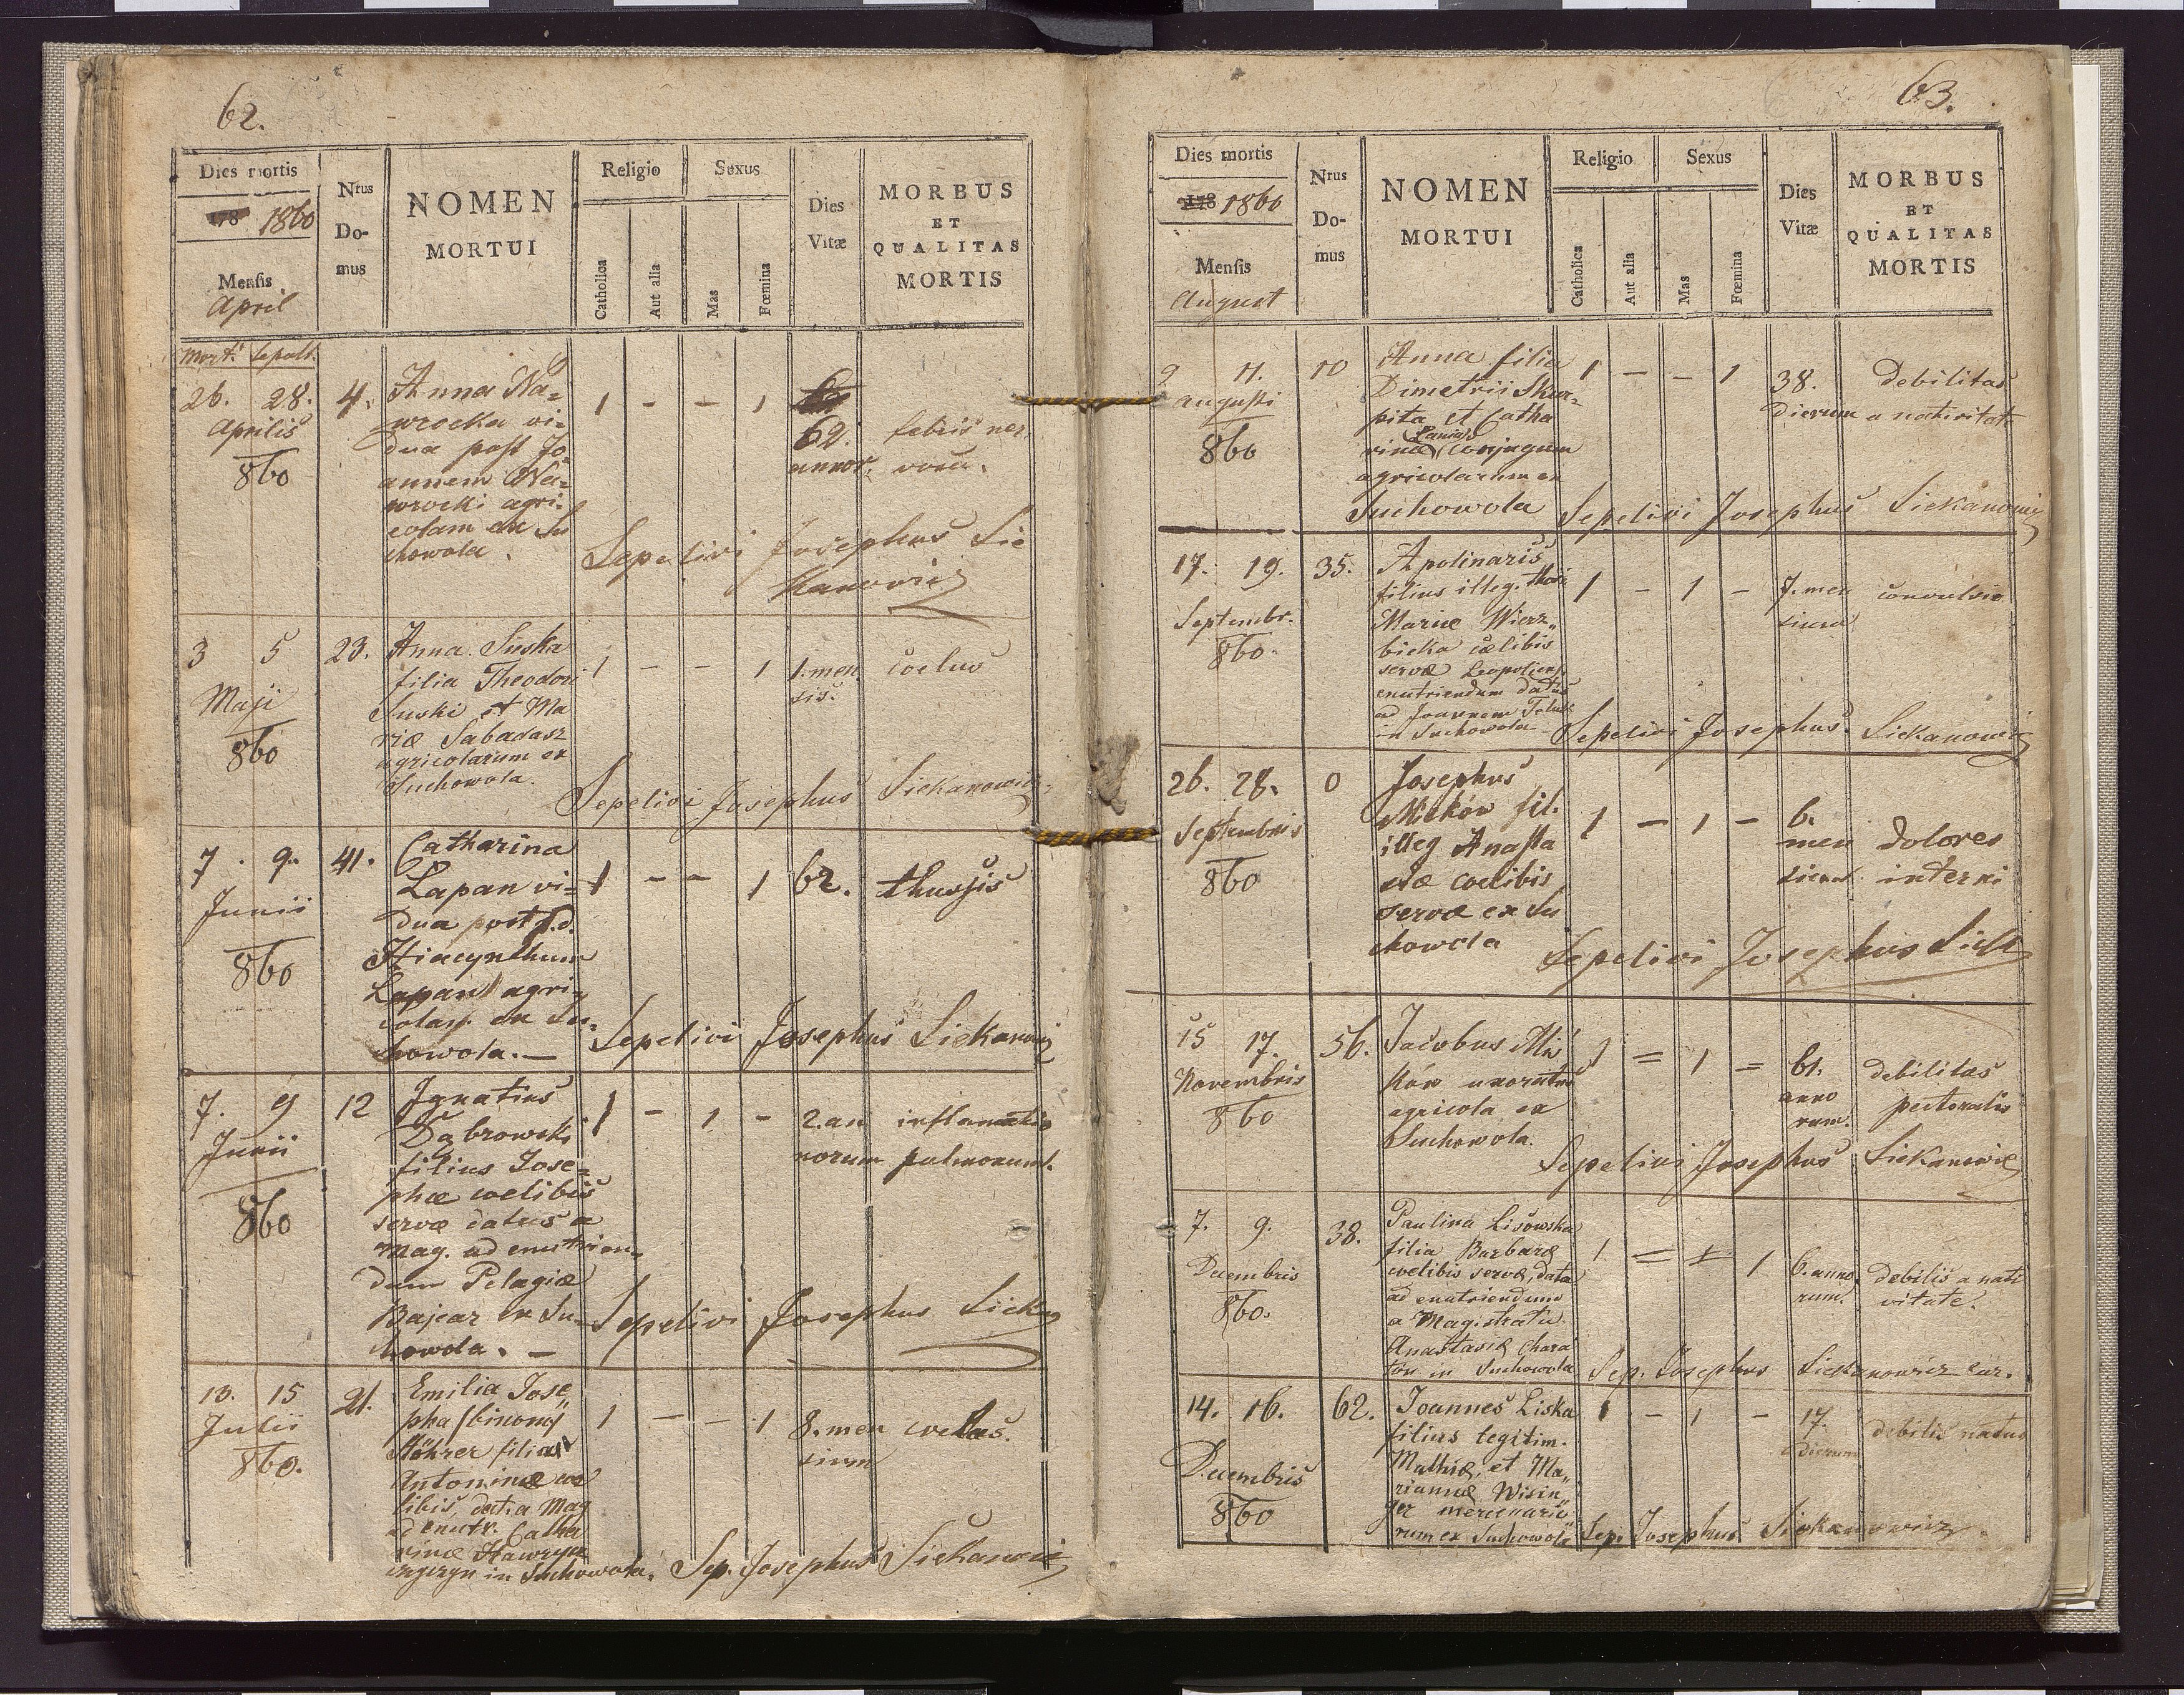 62.
Dies mortis
178 1860
Mensis
April
Nrus
Do-
mus
NOMEN
MORTUI
Religio
Catholica
Aut alia
Sexus
Mas
Fœmina
Dies
Vitæ
MORBUS
ET
QUALITAS
MORTIS
Mort. Sepult.
26. 28. 4. Anna Na=
Aprilis
860
wrocka vi=
dua post Jo=
annem Na=
wrocki agri=
colam ex Su
chowola.
1 - - 1
62.
annor.
febris ner
vosa.
Sepelivi Josephus Sie
kanowicz
3 5 23. Anna Suska
Maji
860
filia Theodori
Suski et Ma
riæ Sabadasz
agricolarum ex
Suchowola.
1 - - 1
1. men
sis.
Sepelivi Josephus Siekanowicz
7. 9. 41. Catharina
Junii
860
Lapan vi=
dua post p.d.
Hiacynthum
Lapan agri=
colam ex Su=
chowola. —
1 - - 1 62. thussis
Sepelivi Josephus Siekanowicz
7. 9 12 Ignatius
Junii
860
Dąbrowski
filius Jose=
phæ coelibis
servæ datus a
Mag. ad enutrien=
dum Pelagiæ
Bajcar ex Su=
chowola. —
1 - 1 -
2. an
norum
inflamatio
pulmonum.
Sepelivi Josephus Siekan
13. 15 21. Emilia Jose„
Julii
860.
pha (binomi)
Möhrer filia
Antoninæ coe
libis, dat. a Mag
ad enutr. Catha
rinæ Hawrysz
in Suchowola.
1 - - 1
8. men
sium
Sep. Josephus Siekanowicz
63.
Dies mortis
178 1860
Mensis
August
Nrus
Do-
mus
NOMEN
MORTUI
Religio
Catholica
Aut alia
Sexus
Mas
Fœmina
Dies
Vitæ
MORBUS
ET
QUALITAS
MORTIS
9 11. 10 Anna filia
augusti
860
Dimetrii Skwa=
pita et Catha
rinæ conjugum
agricolarum ex
Suchowola
1 - - 1
38.
Dierum
debilitas
a nativitate
Sepelivi Josephus Siekanowicz
17. 19. 35. Apolinaris
Septembr.
860.
filius illeg. thori
Mariæ Wierz„
bicka cælibis
servæ Leopoliens
enutriendum datus
ad Joannem
in Suchowola
1 - 1 -
7. men
sium
convulsio
Sepelivi Josephus Siekanowicz
26. 28. 0 Josephus
Septembris
860
Miśków fil.
illeg Anasta
siæ coelibis
servæ ex Su
chowola
1 - 1 -
6.
men
sium
dolores
interni
Sepelivi Josephus Siek
15 17. 56. Jacobus Miś
Novembris
860
ków uxoratus
agricola ex
Suchowola.
1 = 1 =
61.
anno
rum.
debilitas
pectoralis
Sepelivi Josephus Siekanowicz
7. 9. 38. Paulina Lisowska
Decembris
860.
filia Barbaræ
coelibis servæ, data
ad enutriendum
a Magistratu
Anastasiæ Chara
ton in Suchowola
1 = 1 1
6. anno
rum.
debilis a nati
vitate.
Sep. Josephus Siekanowicz Cur.
14. 16. 62. Joannes Liska
Decembris
860
filius legitim.
Mathiæ, et Ma„
riannæ Wisin„
ger mercenario„
rum ex Suchowola
1 - 1 -
17.
Dierum
debilis natus
Sep. Josephus Siekanowicz